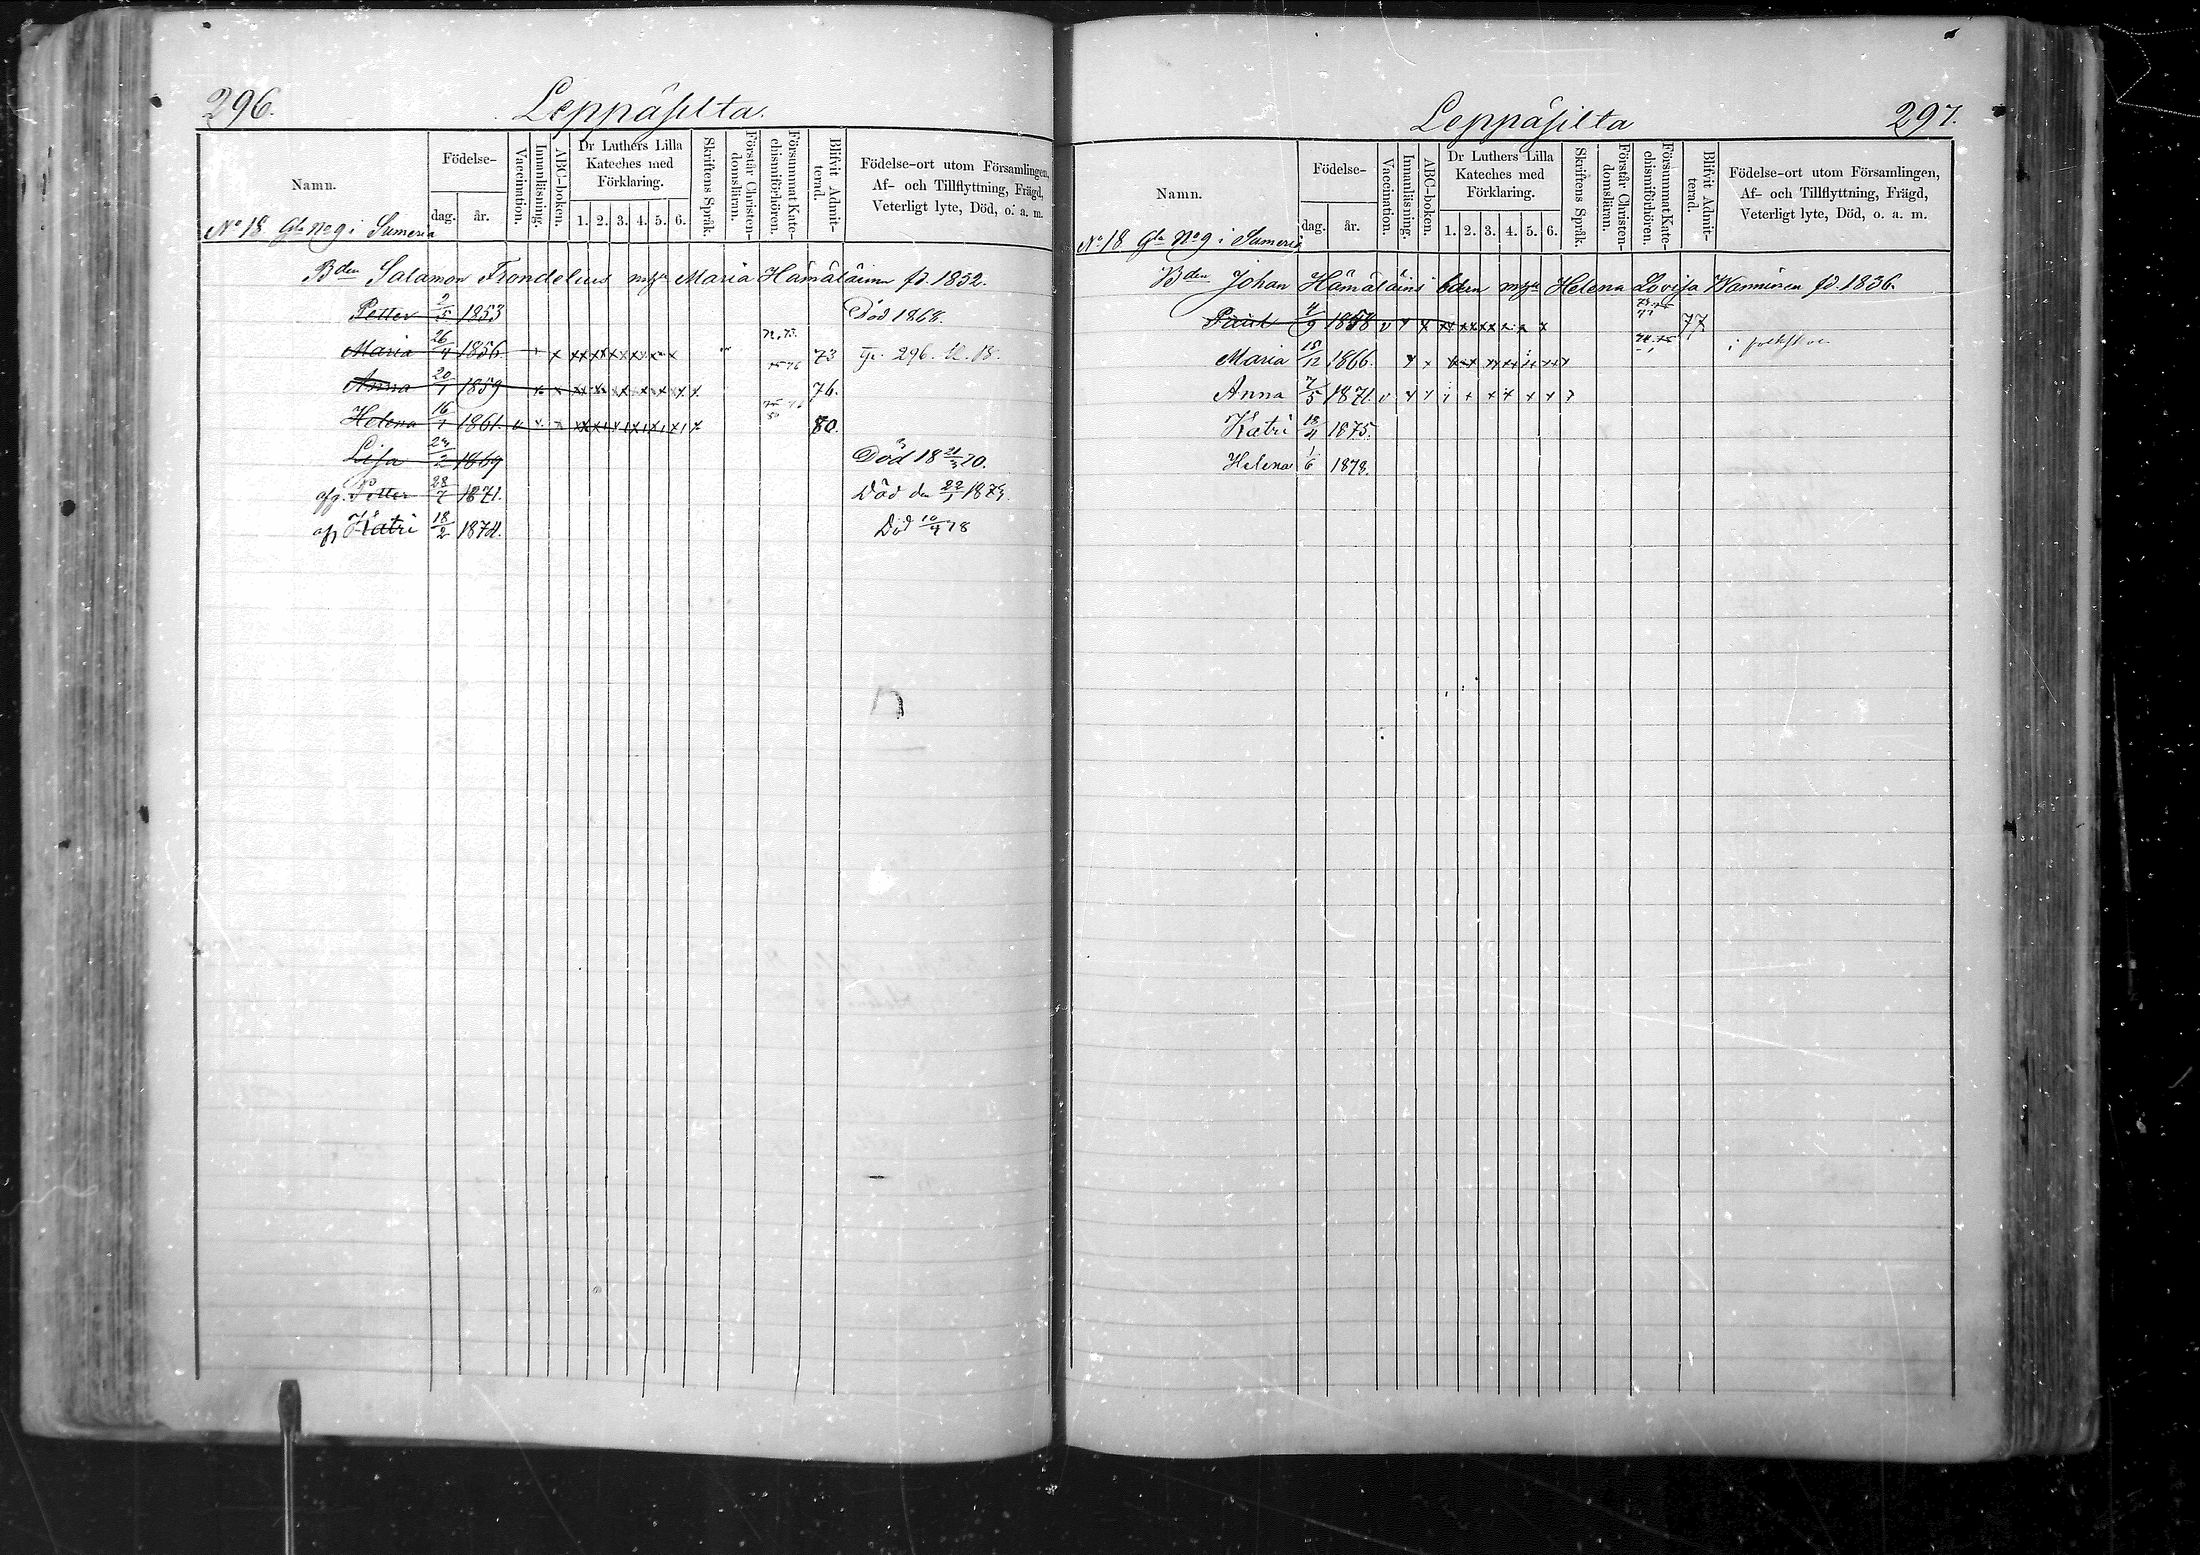 296.
Leppäsilta.
Namn.
Födelse-
dag.
år.
Vaccination.
Innanläsning.
ABC-boken.
Dr Luthers Lilla
Kateches med
Förklaring.
1. 2. 3. 4. 5. 6.
Skriftens Språk.
Förstår Christen-
domsläran.
Försummat Kate-
chismiförhören.
Blifvit Admit-
terad.
Födelse-ort utom Församlingen,
Af- och Tillflyttning, Frägd,
Veterligt lyte, Död, o. a. m.
No 18 Gla No 9 i Sumeria
Bden Salamon Frondelius Maria Hämäläinen fd. 1832.
Petter 2/5 1853 Död 1868.
Maria 26/4 1856 73 296.
Anna 20/1 1859 76.
Helena 16/1 1861 80.
Lisa 2 1869 Död 18 21/3 70.
Petter 28/7 1871. Död den 22/1 187
Kätri 18/2 1874. Död 10/4 78
Leppäsilta
297.
Namn.
Födelse-
dag.
år.
Vaccination.
Innanläsning.
ABC-boken.
Dr Luthers Lilla
Kateches med
Förklaring.
1. 2. 3. 4. 5. 6.
Skriftens Språk.
Förstår Christen-
domsläran.
Försummat Kate-
chismiförhören.
Blifvit Admit-
terad.
Födelse-ort utom Församlingen,
Af- och Tillflyttning, Frägd,
Veterligt lyte, Död, o. a. m.
No 18 Gla No 9 i Sumeria
Bden Johan Hämäläins Helena Lovisa Wanninen fd. 1836.
Paul 4/9 1858 77
Maria 15/12 1866.
Anna 7/5 1871.
Kätri 18/4 1875.
Helena 1/6 1878.